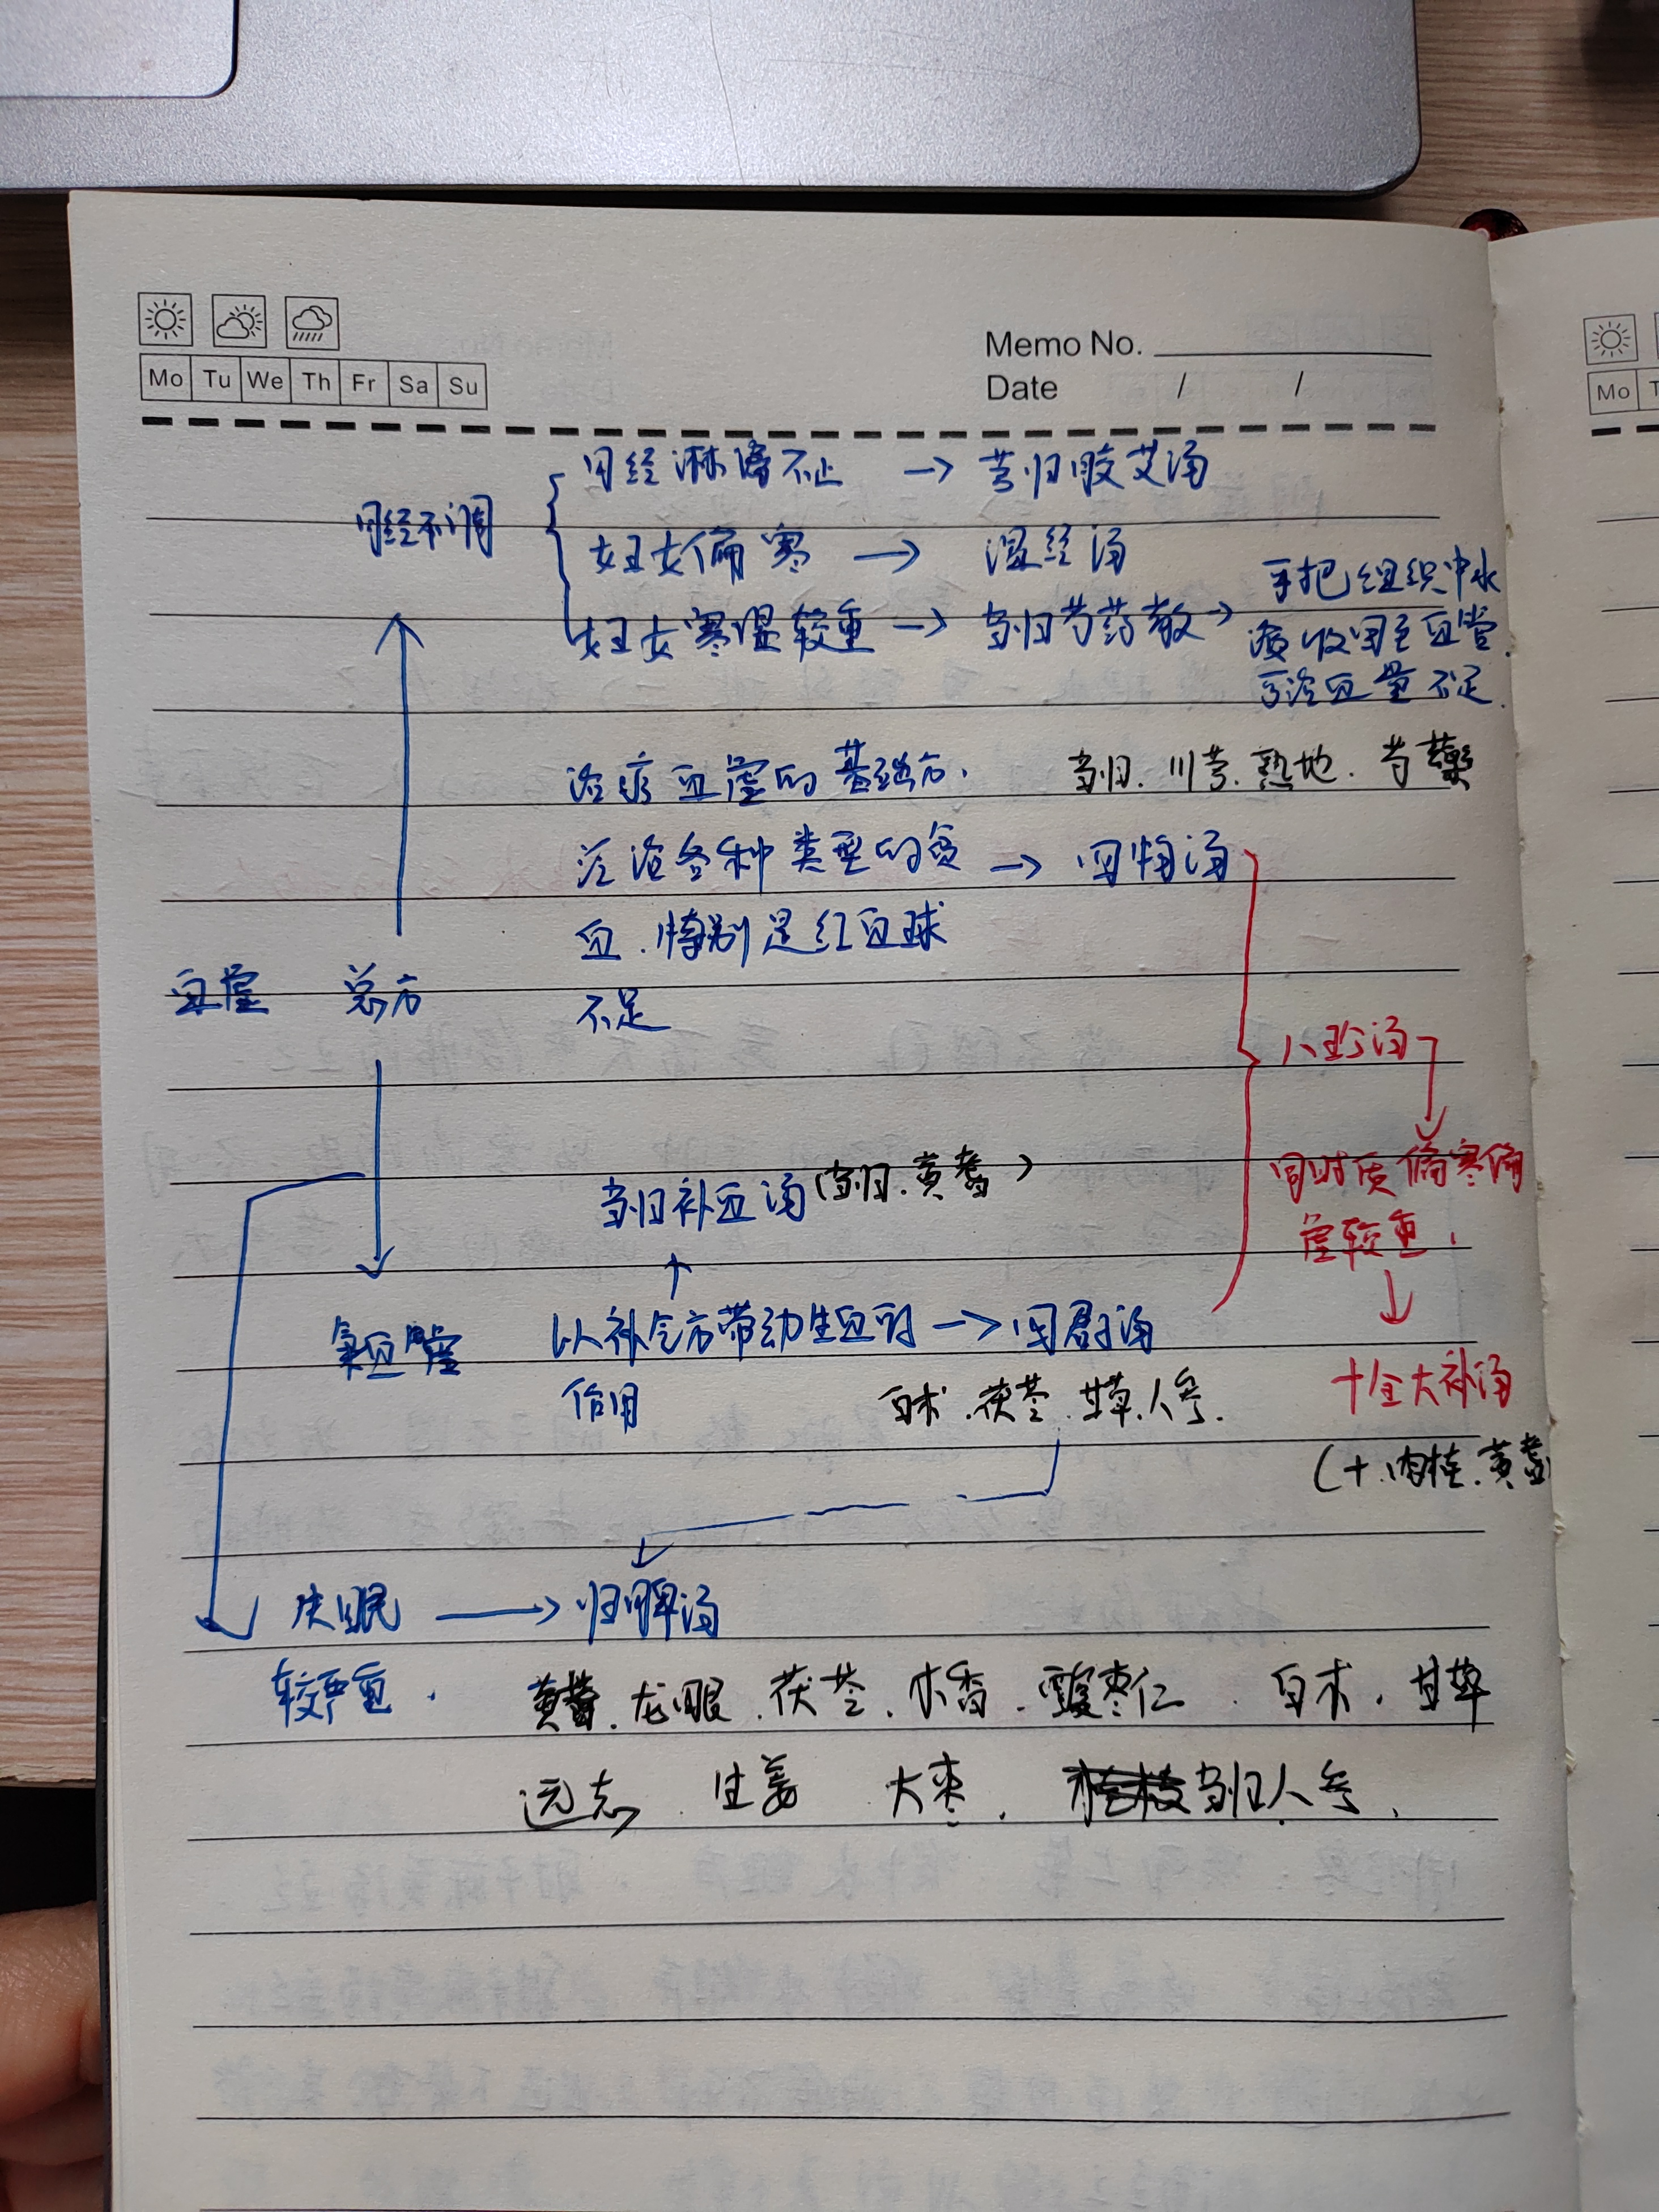 Mo Tu We Th Fr Sa Su
Memo No.
Date / /
Mo
月经不调
月经淋漓不止 → 芎归胶艾汤
妇女偏寒 → 温经汤
妇女寒湿较重 → 当归芍药散 →
可把组织中水
液收回至血管.
可治血量不足.
治疗血虚的基础方. 当归.川芎.熟地.芍藥
泛治各种类型的贫 → 四物汤
血.特别是红血球
不足
血虚 总方
八珍汤
同时质偏寒偏
虚较重.
十全大补汤
(+.肉桂.黄芪
当归补血汤(当归.黄芪)
气血虚
以补气方带动生血的 → 四君子汤
作用 白术.茯苓.甘草.人参.
失眠 → 归脾汤
较严重.
黄芪.龙眼.茯苓.木香.酸枣仁.白术.甘草
远志.生姜 大枣. 桂枝当归人参.